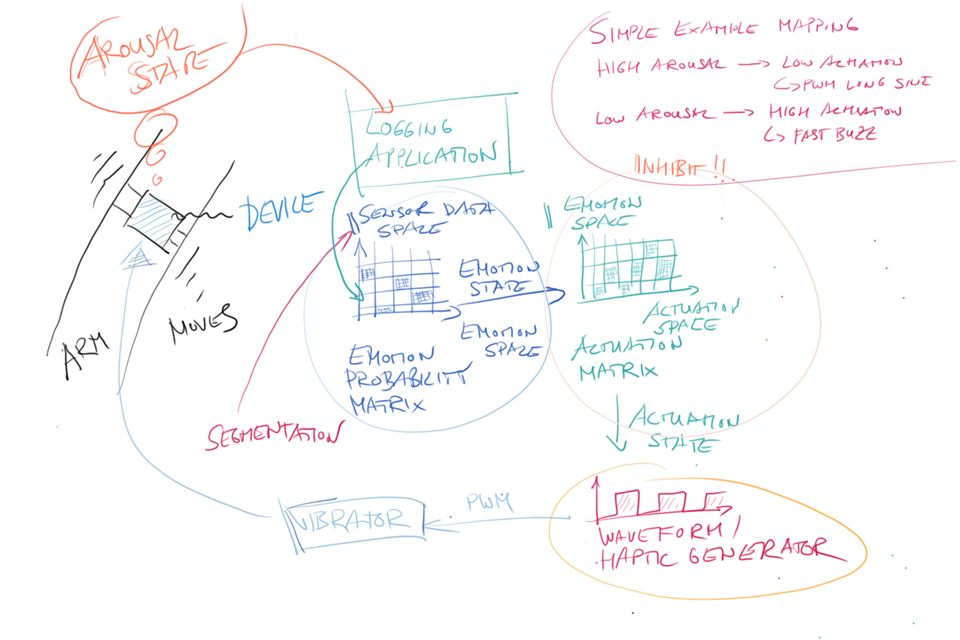 AROUSAL
STATE
SIMPLE EXAMPLE MAPPING
HIGH AROUSAL → LOW ACTUATION
↳ PWM LONG SINE
LOW AROUSAL → HIGH ACTUATION
↳ FAST BUZZ
LOGGING
APPLICATION
INHIBIT!!
DEVICE
SENSOR DATA
SPACE
EMOTION
SPACE
EMOTION
STATE
EMOTION
SPACE
ACTUATION
SPACE
ARM
MOVES
EMOTION
PROBABILITY
MATRIX
ACTUATION
MATRIX
SEGMENTATION
ACTUATION
STATE
VIBRATOR
PWM
WAVEFORM/
HAPTIC GENERATOR